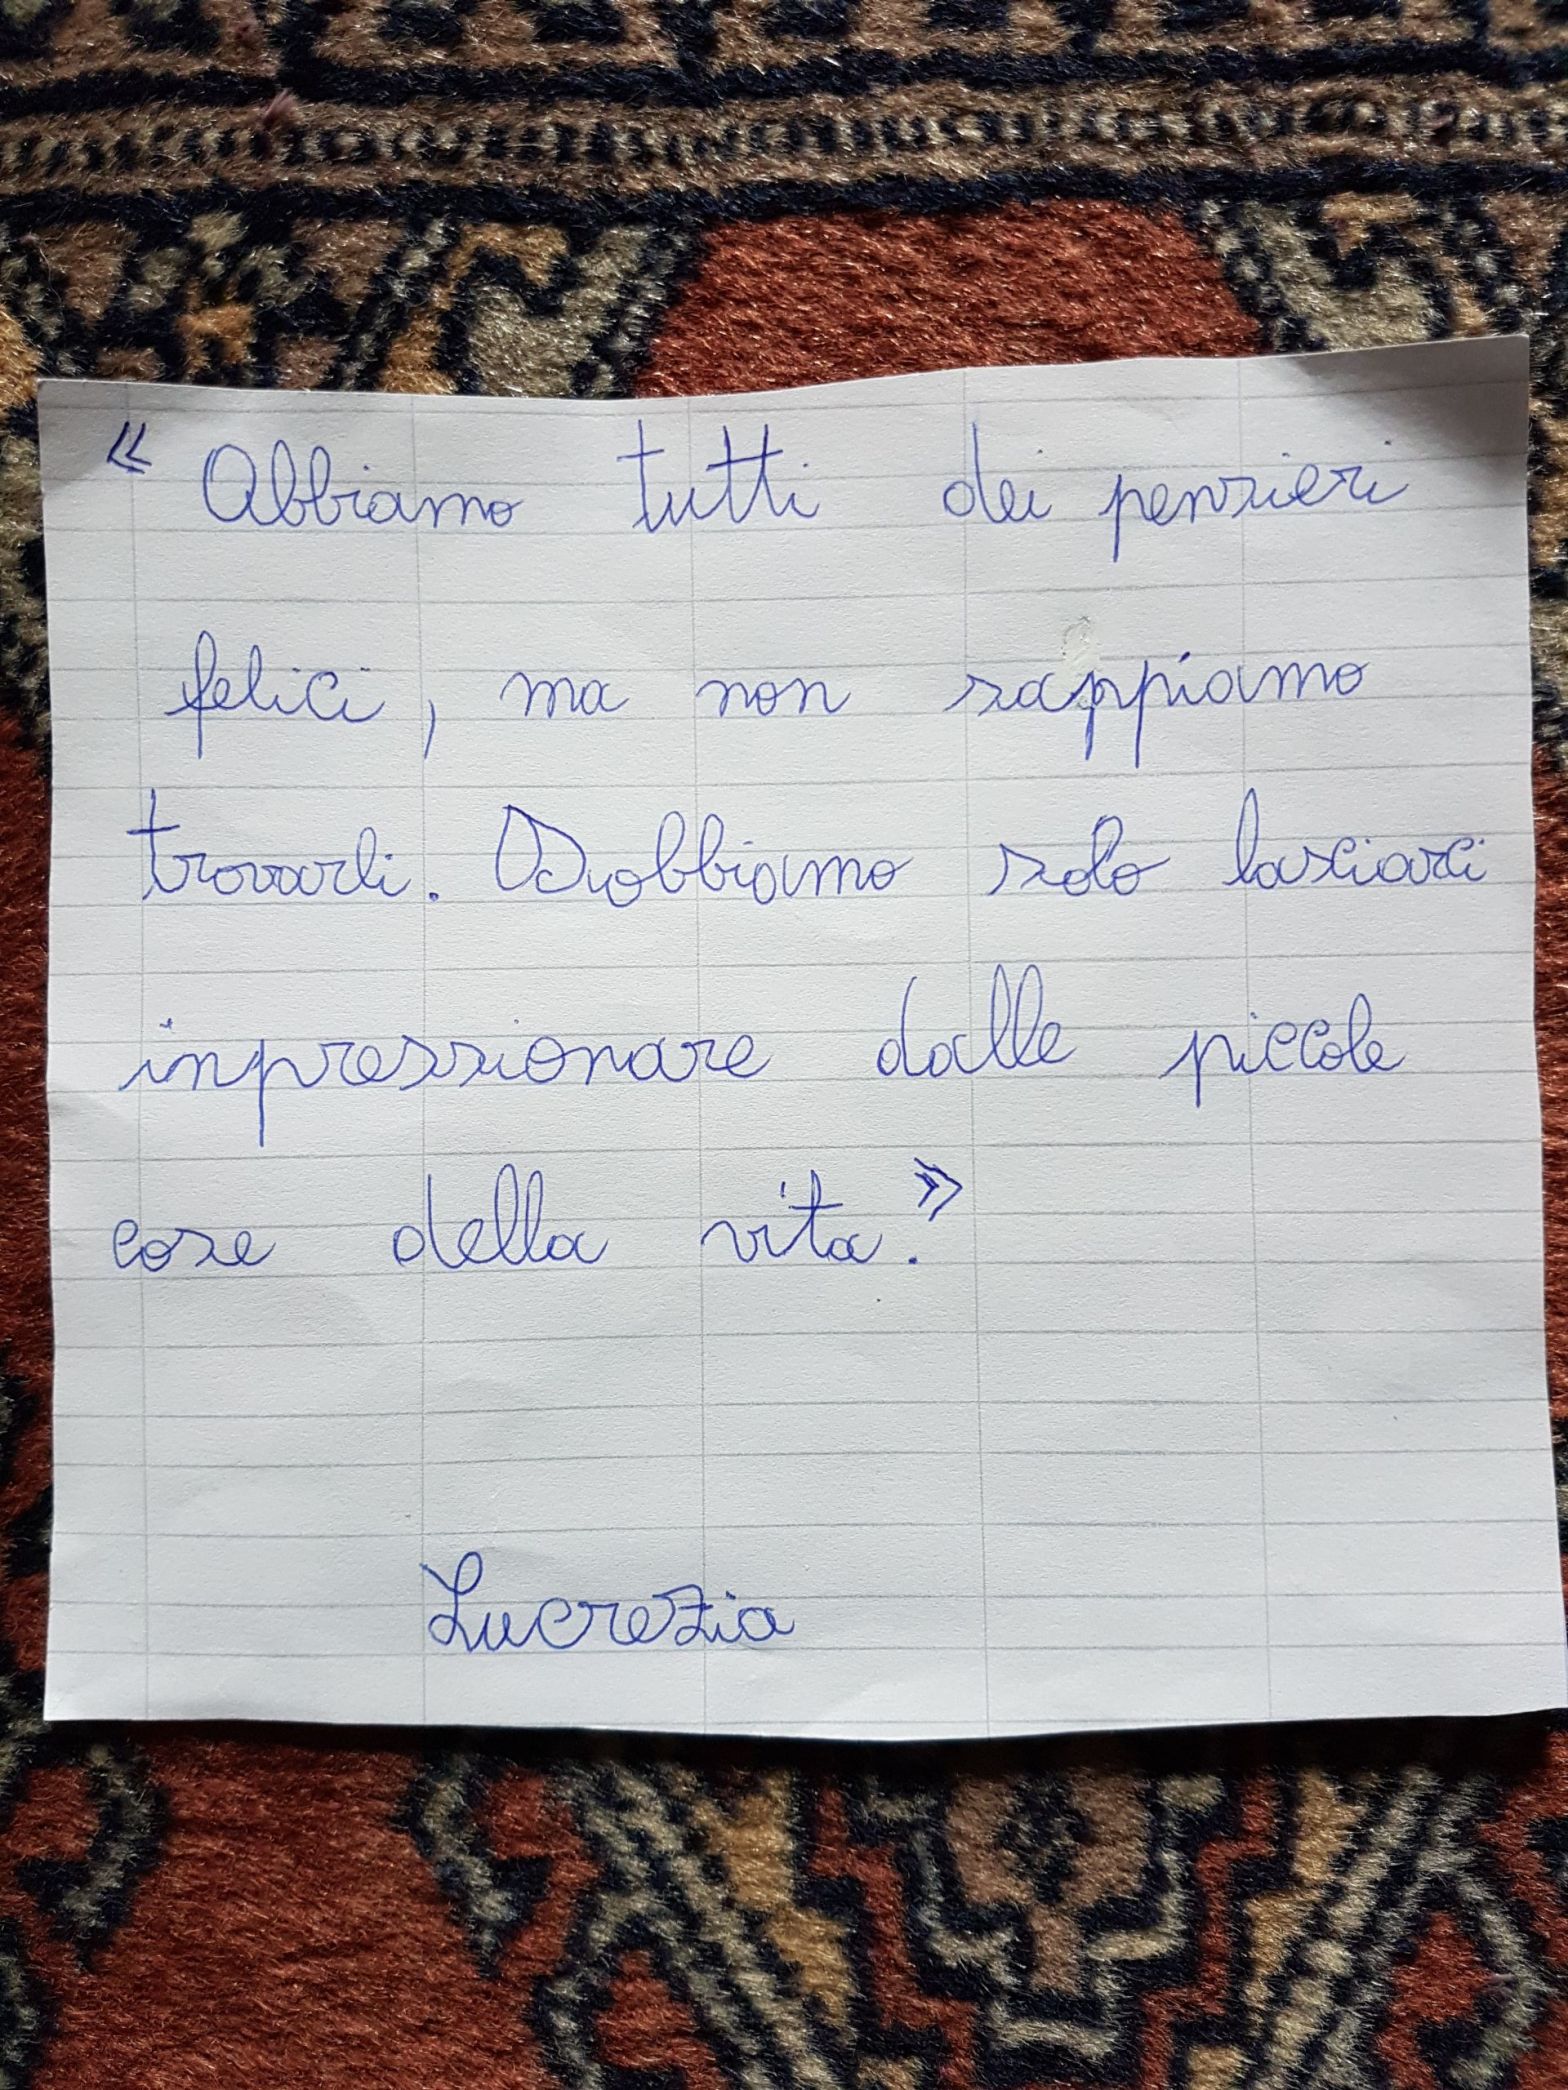 «Abbiamo tutti dei pensieri
felici, ma non sappiamo
trovarli. Dobbiamo solo lasciarci
inpressionare dalle piccole
cose della vita.»
Lucrezia